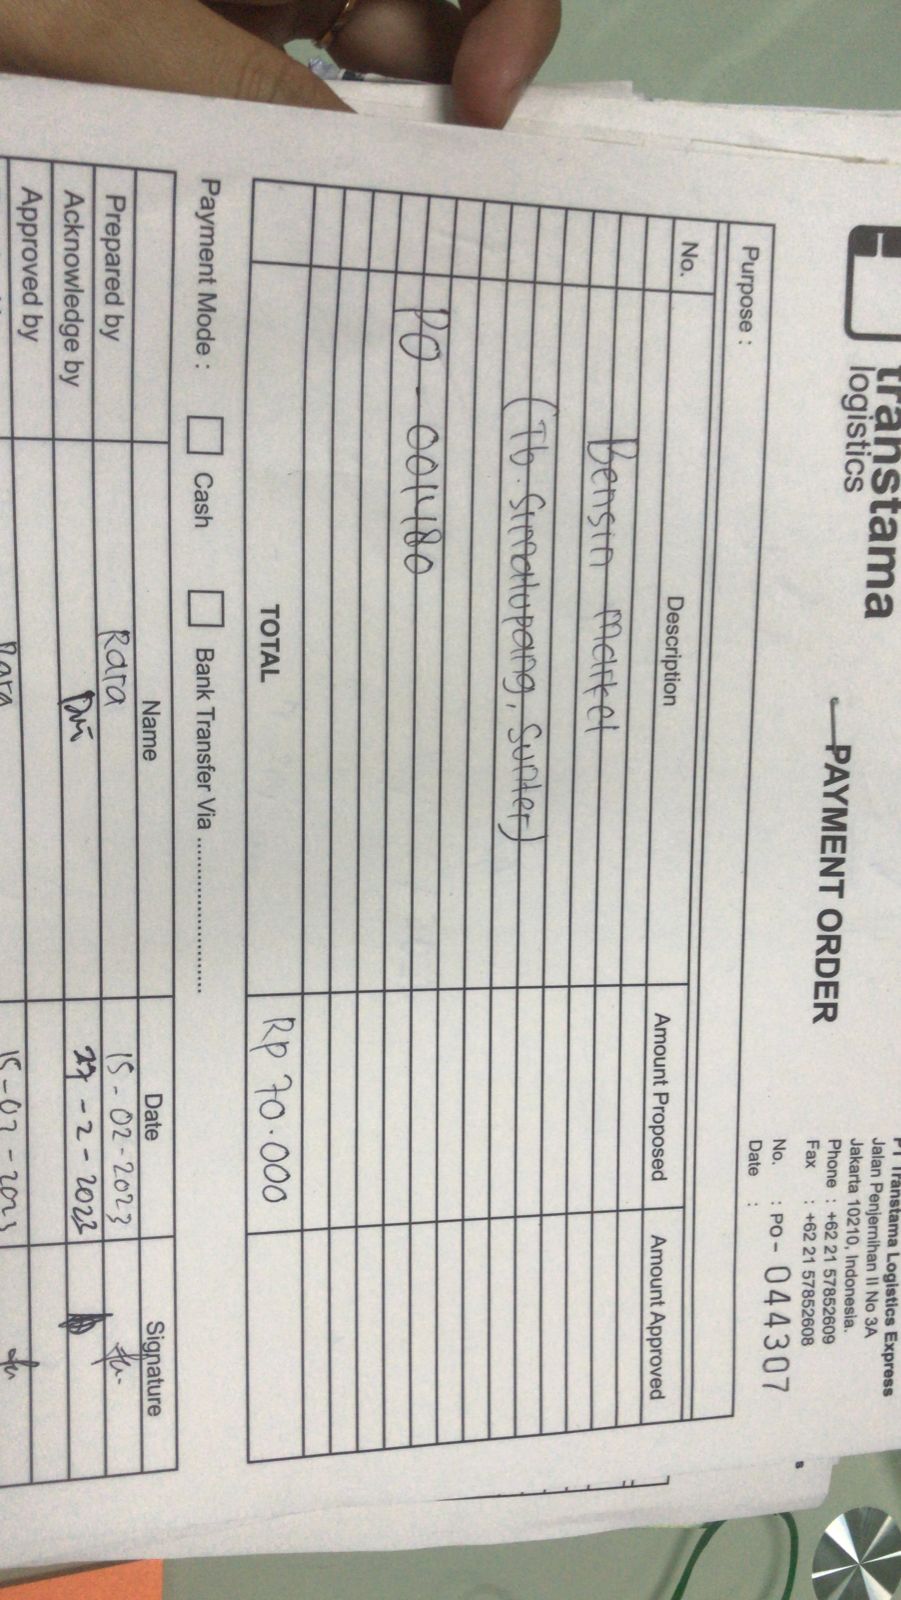 transtama
logistics
PAYMENT ORDER
PT Transtama Logistics Express
Jalan Penjernihan II No 3A
Jakarta 10210, Indonesia.
Phone : +62 21 57852609
Fax : +62 21 57852608
No. : PO- 044307
Date :
Purpose :
No. Description Amount Proposed Amount Approved
Bensin Market
(Tb. Simatupang, Sunter)
PO - 001480
TOTAL Rp 70.000
Payment Mode : Cash Bank Transfer Via ......................
Name Date Signature
Prepared by Rara 15 - 02 - 2023
Acknowledge by 27 - 2 - 2023
Approved by Rara 15 - 02 - 2023